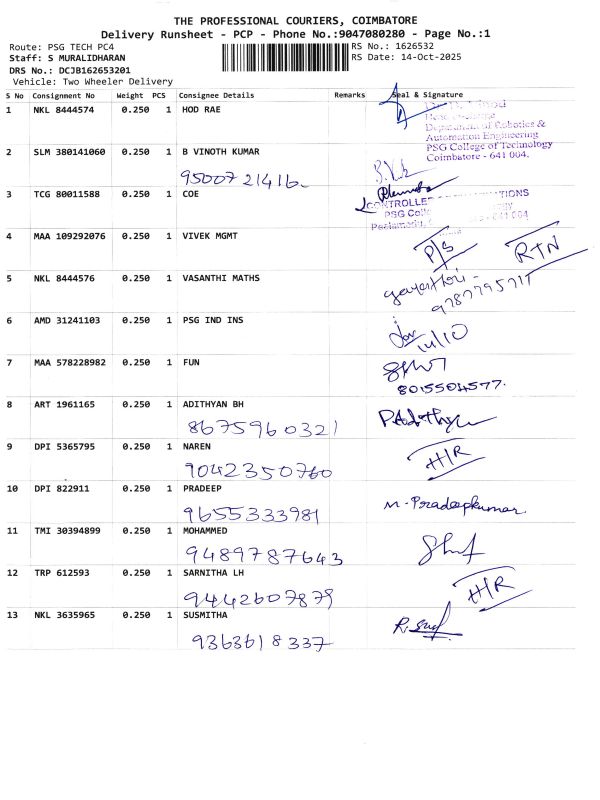 THE PROFESSIONAL COURIERS, COIMBATORE
Delivery Runsheet - PCP - Phone No.:9047080280 - Page No.:1
Route: PSG TECH PC4
RS No.: 1626532
Staff: S MURALIDHARAN
RS Date: 14-Oct-2025
DRS No.: DCJB162653201
Vehicle: Two Wheeler Delivery
S No Consignment No Weight PCS Consignee Details Remarks Seal & Signature
1 NKL 8444574 0.250 1 HOD RAE
Department of Robotics &
Automation Engineering
PSG College of Technology
Coimbatore - 641 004.
2 SLM 380141060 0.250 1 B VINOTH KUMAR
95007 21416
3 TCG 80011588 0.250 1 COE
CONTROLLE TIONS
PSG Coll
641 004
4 MAA 109292076 0.250 1 VIVEK MGMT
P/S RTN
5 NKL 8444576 0.250 1 VASANTHI MATHS
9787795717
6 AMD 31241103 0.250 1 PSG IND INS
14/10
7 MAA 578228982 0.250 1 FUN
8015504577.
8 ART 1961165 0.250 1 ADITHYAN BH
8675960321
9 DPI 5365795 0.250 1 NAREN
9042350760
H/R
10 DPI 822911 0.250 1 PRADEEP
9655333981
M. Pradeepkumar.
11 TMI 30394899 0.250 1 MOHAMMED
9489787643
12 TRP 612593 0.250 1 SARNITHA LH
9442607879
H/R
13 NKL 3635965 0.250 1 SUSMITHA
9363618337